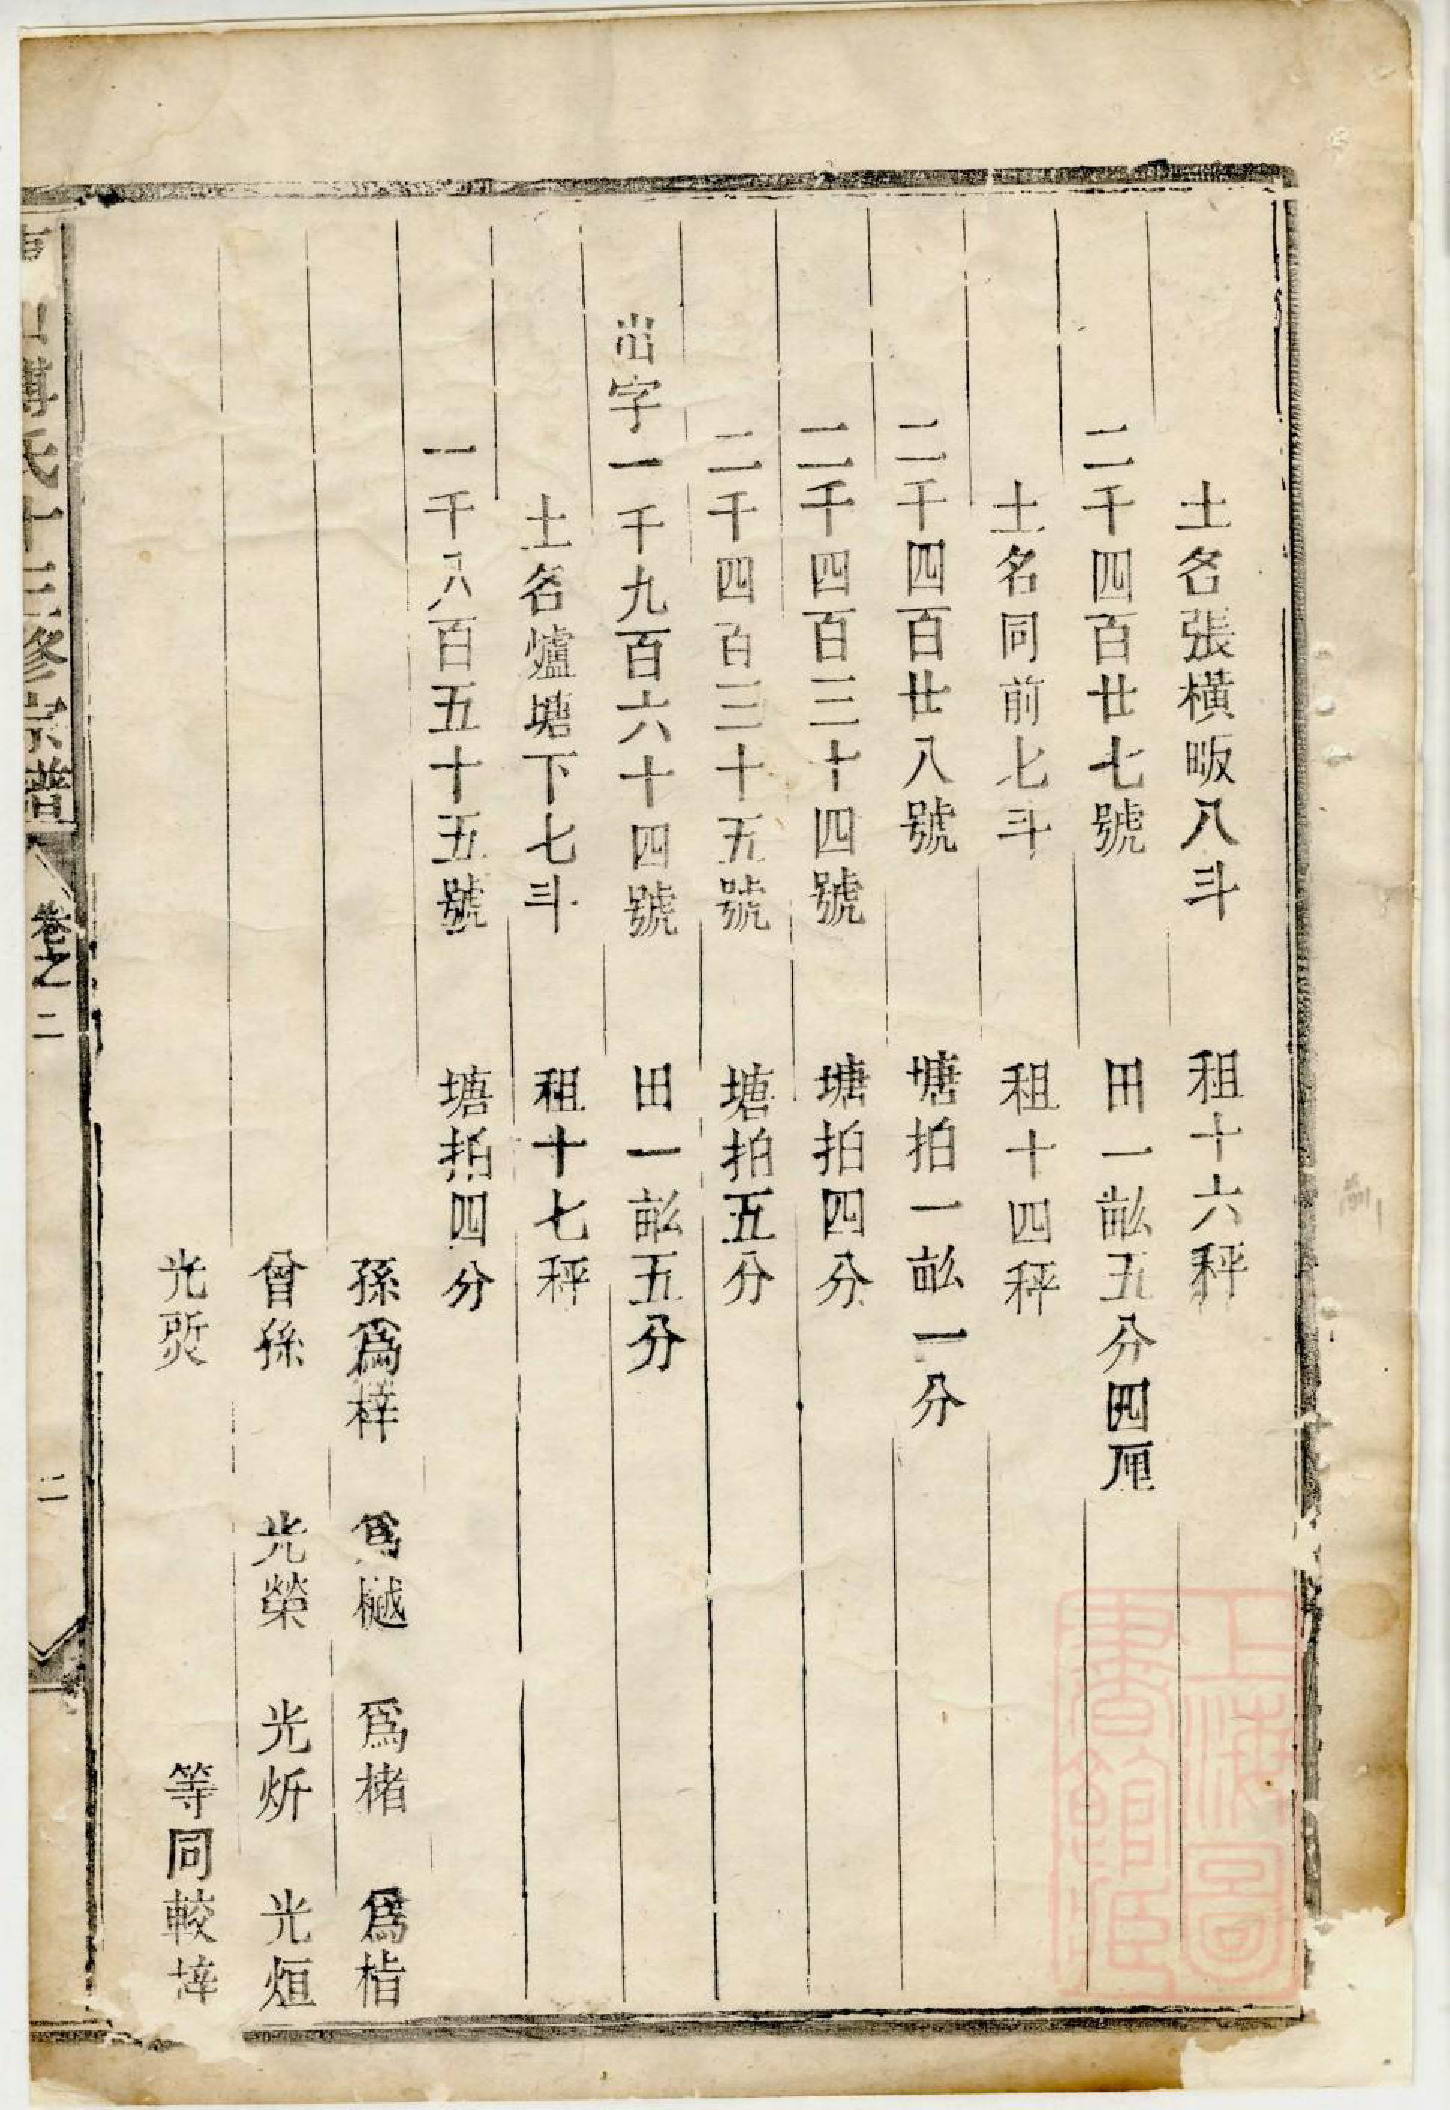 土名張橫畈八斗　租十六秤
二千四百廿七號　田一畝五分四厘
土名同前七斗　租十四秤
二千四百廿八號　塘拍一畝一分
二千四百三十四號　塘拍四分
二千四百三十五號　塘拍五分
出字一千九百六十四號　田一畝五分
土名爐塘下七斗　租十七秤
一千八百五十五號　塘拍四分
孫爲梓　爲樾　爲楮　爲楷
曾孫　光榮　光炘　光烜
光煚　等同較
傅氏十三修宗譜　卷之二　二
上海圖書館藏